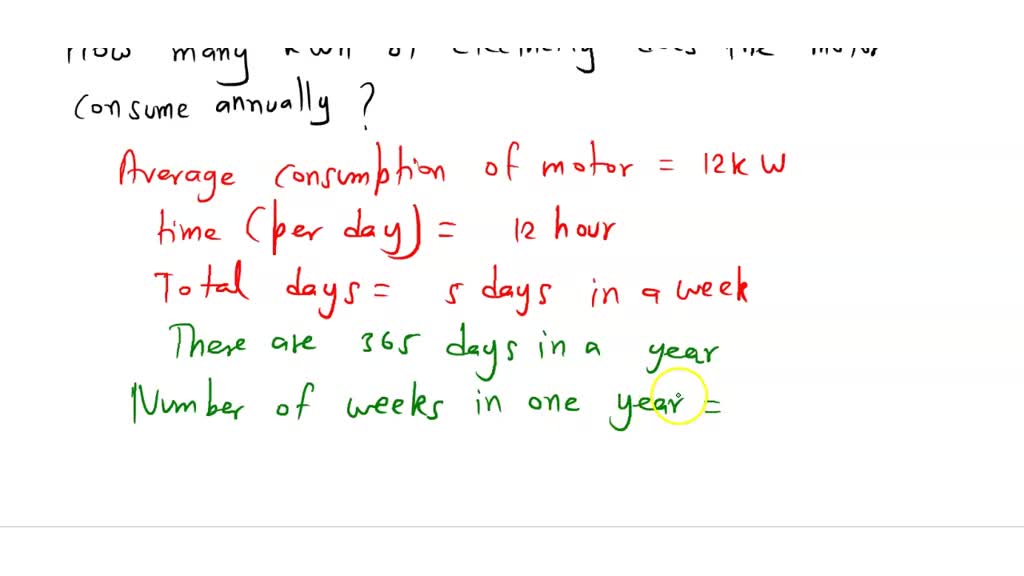 How many kWh of electricity does the motor
consume annually ?
Average consumption of motor = 12kW
time (per day) = 12 hour
Total days = 5 days in a week
There are 365 days in a year
Number of weeks in one year =